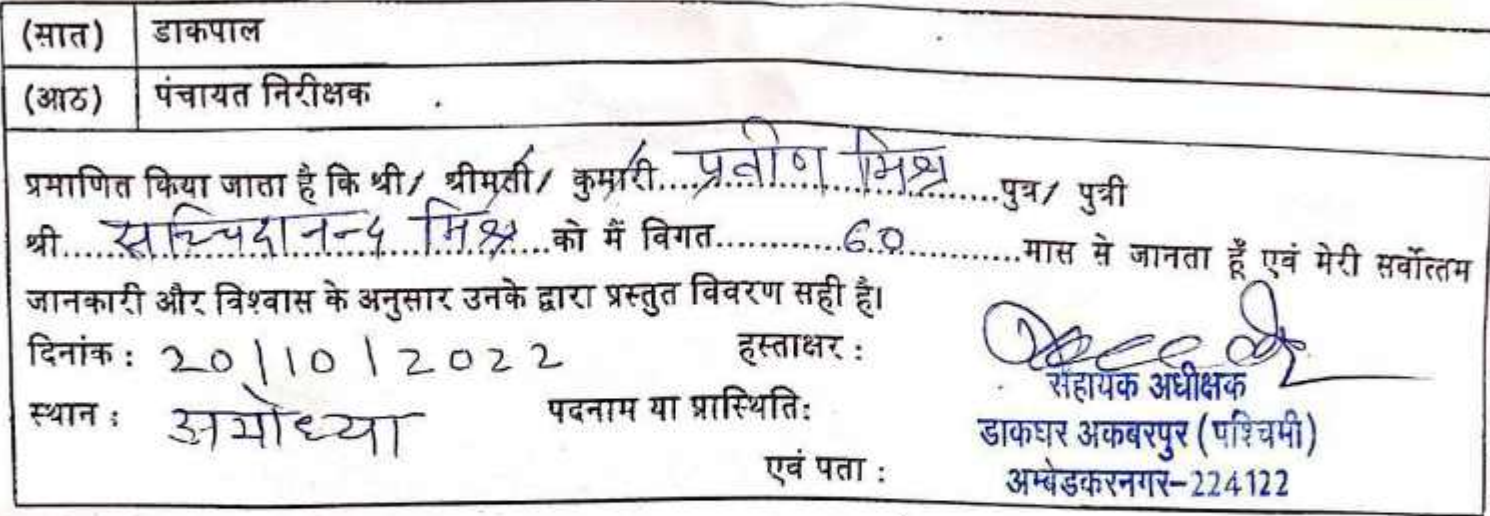 (सात) डाकपाल
(आठ) पंचायत निरीक्षक
प्रमाणित किया जाता है कि श्री/ श्रीमती/ कुमारी....प्रवीण मिश्र....पुत्र/ पुत्री
श्री....सच्चिदानन्द मिश्र....को मैं विगत............60............मास से जानता हूँ एवं मेरी सर्वोत्तम
जानकारी और विश्वास के अनुसार उनके द्वारा प्रस्तुत विवरण सही है।
दिनांक : 20/10/2022 हस्ताक्षर :
सहायक अधीक्षक
स्थान : अयोध्या पदनाम या प्रास्थिति:
डाकघर अकबरपुर (पश्चिमी)
एवं पता :
अम्बेडकरनगर-224122